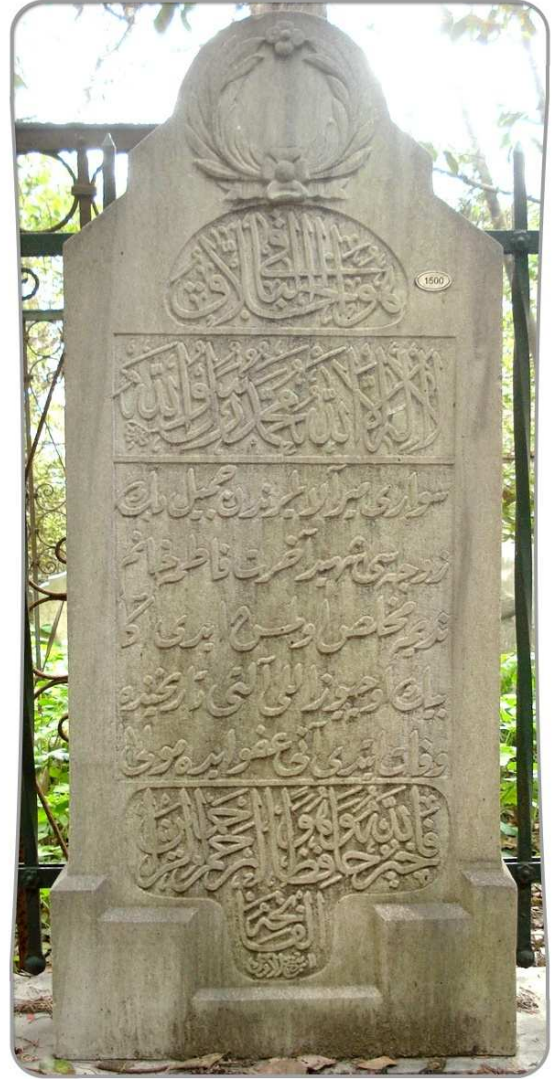 هو الباقي
1500
لا اله الا الله محمد رسول الله
سواری میرآلایلرندن جمیل بك
زوجه سی شهید آخرت فاطمه خانم
مخلص ایدی
بیك اوچیوز اللی آلتی تاریخنده
وفات ایتدی آنی عفو ایده مولی
فالله خير حافظا وهو ارحم الراحمين
الفاتحة